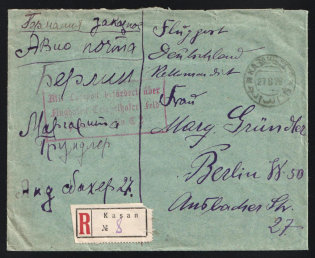 Германия заказное
Авио почта
Берлин
Маргарита
Грундлер
Ансбахер 27.
Flugpost
Deutschland
Frau
Marg. Gründler
Berlin W 50
Ansbacher Str.
27
Mit Luftpost befördert
R
Kasan
№ 8